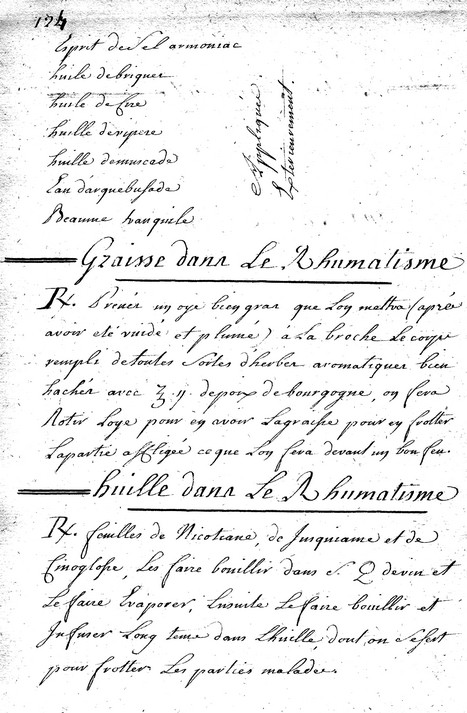 124
Esprit de Sel armoniac
huile de briques
huile de Cire
huille de vipere
huille de muscade
Eau d'arquebusade
Beaume tranquile
Appliquée
Exterieurement.
Graisse dans Le Rhumatisme
Rx. Prenés un oye bien gras que Lon mettra (aprés
avoir eté vuidé et plumé) à La broche Le corps
rempli de toutes Sortes d'herbes aromatiques bien
hachés avec ʒ ij. de poix de bourgogne, on fera
Rotir Loye pour en avoir Lagraisse pour en frotter
Lapartie affligée ce que Lon fera devant un bon feu.
huille dans Le Rhumatisme
Rx. feuilles de Nicotiane, de Jusquiame et de
Cinoglosse, Les faire bouillir dans S. Q de vin et
Le faire Evaporer, Ensuite Le faire bouillir et
Infuser Long tems dans Lhuille, dont on Se sert
pour frotter Les parties malades.